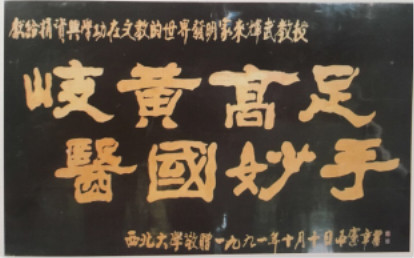 獻給捐資興學功在文教的世界發明家来輝武教授
岐黄高足
醫國妙手
西北大學敬贈一九九一年十月十日